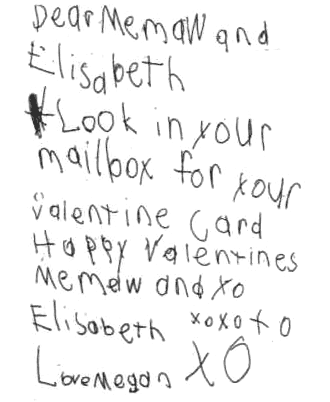 Dear Memaw and
Elisabeth
Look in your
mailbox for your
Valentine Card
Happy Valentines
Memaw and xo
Elisabeth xoxo+o
Love Megan XO